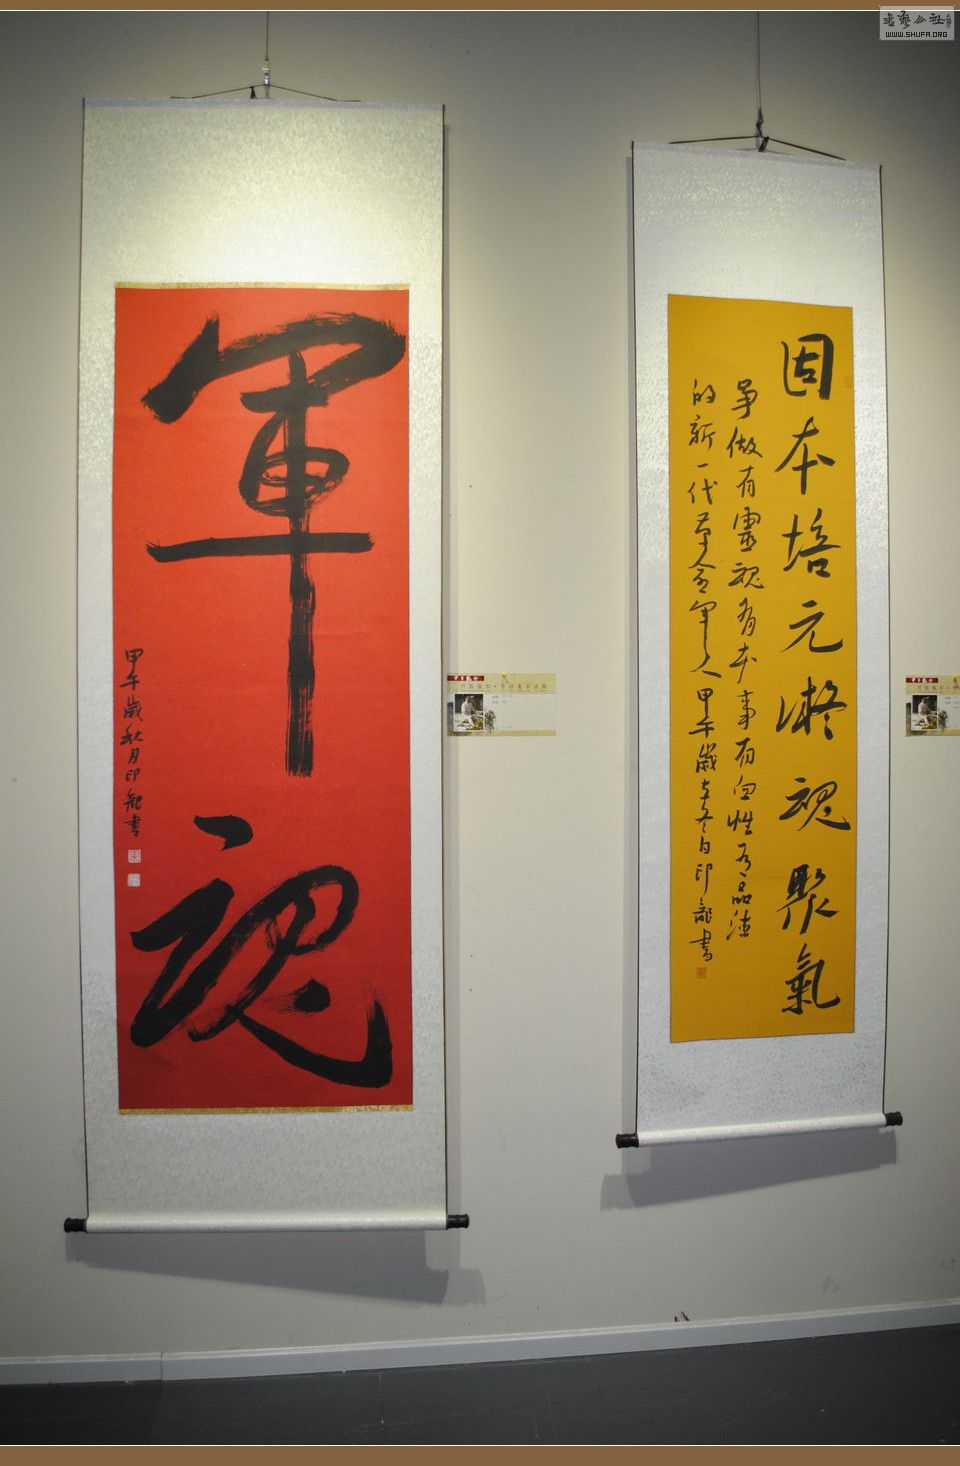 書藝公社
WWW.SHUFA.ORG
軍魂
甲午歲秋月印龍書
固本培元凝魂聚氣
爭做有靈魂有本事有血性有品德
的新一代革命軍人甲午歲立冬日印龍書